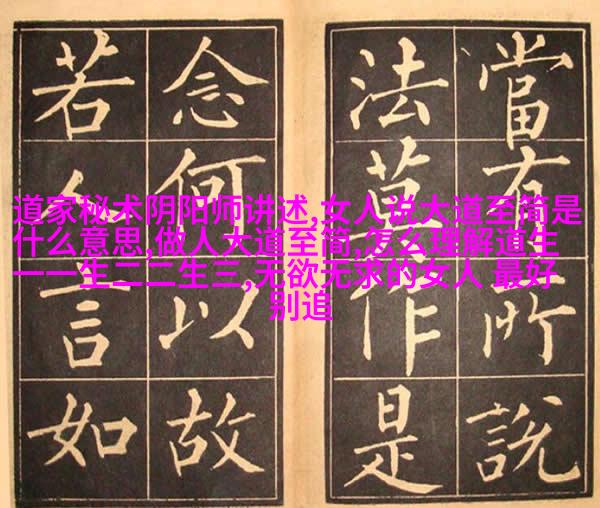 當有所說
法莫作是
念何以故
若人言如
道家秘术阴阳师讲述,女人说大道至简是
什么意思,做人大道至简,怎么理解道生
一一生二二生三,无欲无求的女人 最好
别追